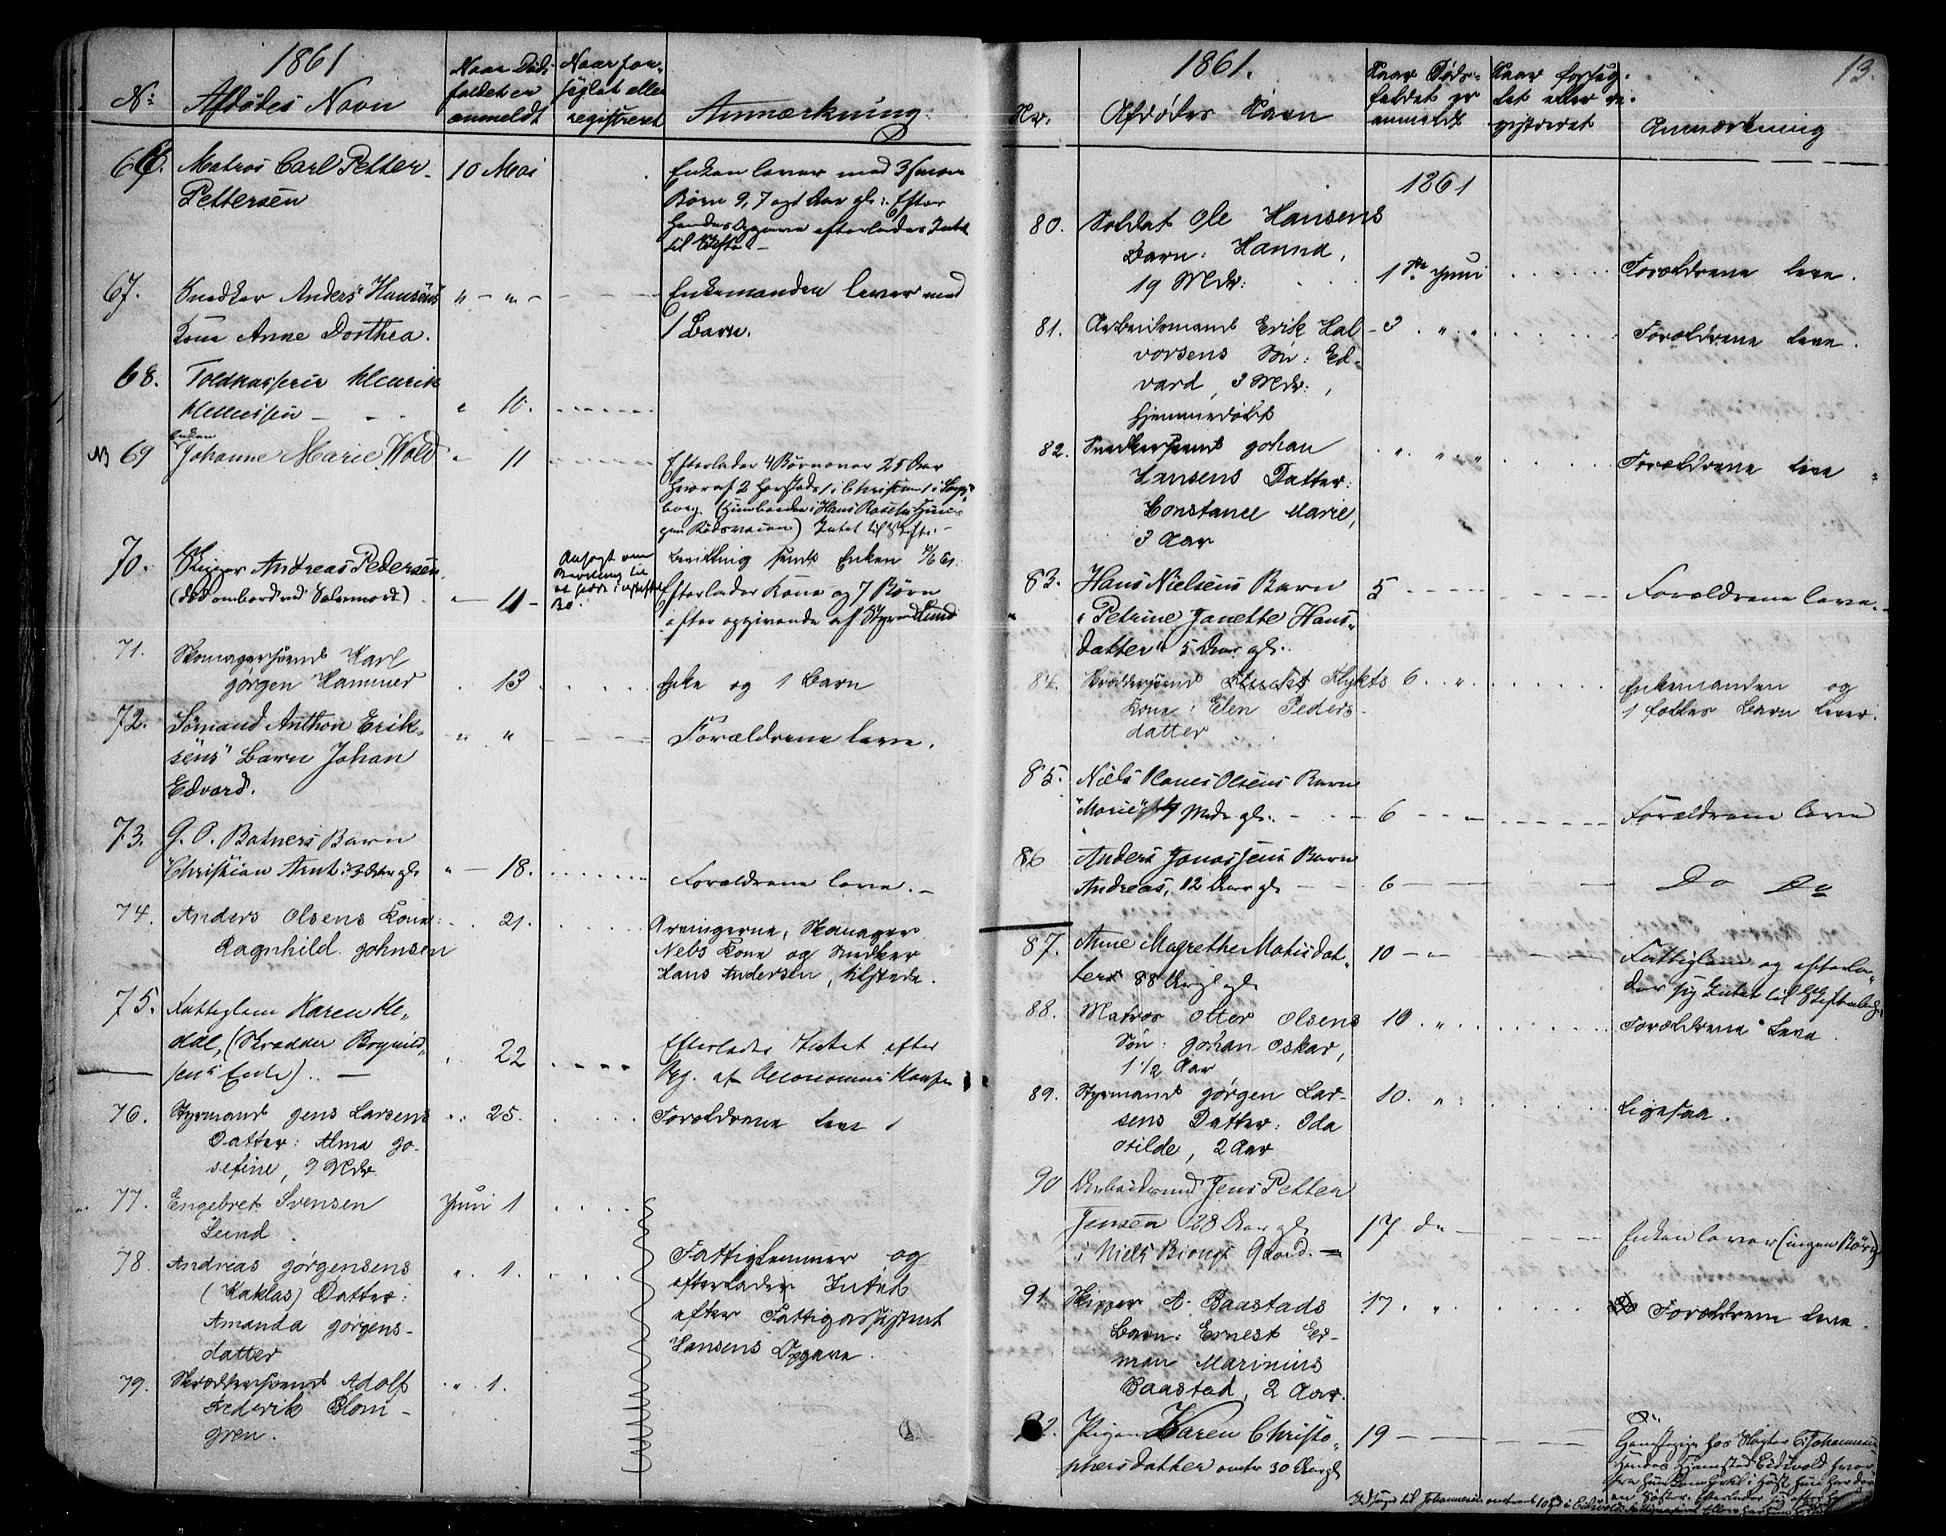 1861
No
Afdødes Navn
Naar Døds-
faldet er
anmeldt
Naar for-
seglet eller
registreret
Anmærkning:
66. Matros Carl Petter
Pettersen
10 Mai
Enken lever med 3 
Børn 9, 7 og 1 Aar gl: Efter
hendes Opgave efterlades Intet
til Skifte
67. Snedker Anders Hansens
Kone Anne Dorthea.
" - " -
Enkemanden lever med
1 Barn.
68. Toldkasserer Henrik
" 10.
NB 69 Enken
Johanne Marie Wold
" 11
Efterlader 4 Børn over 25 Aar
hvoraf 2 1 i Christiania 1 i Sarps-
borg
Intet til Skifte.
70. Skipper Andreas Pedersen
(død ombord ved
" 11 -
Ansøgt om
Bevilling til
at sidde i uskiftet
Bo.
Bevilling sendt Enken
Efterlader Kone og 7 Børn
efter opgivende af Styrmd Lund
71. Skomagersvend Karl
Jørgen Hammer
. 13
Enke og 1 Barn
72. Sømand Anthon Erik-
sens Barn Johan
Edvard.
" "
Forældrene leve.
73. G. O. Batners Barn
Christian Arnt 3 Aar gl
" 18.
Forældrene leve. -
74. Anders Olsens Kone:
Ragnhild Johnsen
21.
Arvingerne, Skomager
Nebs Kone og Snedker
Hans Andersen, tilstede.
75. Fattiglem Karen He-
dal, (Skrædder
sens Enke). . —
22
Efterlades Intet efter
Opg. af Oeconomus
76. Styrmand Jens Larsens
Datter: Alma Jo-
sefine, 9 Mdr
" 25.
Forældrene leve
77. Engebret Svensen
Lund.
Juni 1
78. Andreas Jørgensens
(Kaklas) Datter:
Amanda Jørgens-
datter
" 1.
Fattiglemmer og
efterlader Intet
efter Fattigassistent
Hansens Opgave.
79. Skræddersvend Adolf
Frederik Blom-
gren.
" 1.
13.
1861.
Nr.
Afdødes Navn
Naar Døds-
faldet er
anmeldt
Naar forseg-
let eller re-
gistreret
Anmærkning
1861
80. Soldat Ole Hansens
Barn: Hanna,
19 Mdr:
1ste Juni
Forældrene leve.
81. Arbeidsmand Erik Hal-
vorsens Søn: Ed-
vard, 3 Mdr:,
hjemmedøbt
3 " "
Forældrene leve.
82. Snedkersvend Johan
Hansens Datter:
Constance Marie,
3 Aar
" " "
Forældrene leve
83. Hans Nielsens Barn
"Petrine Janette Hans-
datter" 5 Aar gl.
5
Forældrene leve.
84. Skræddersvend Flykts
Kone: Elen Peders-
datter
6. "
Enkemanden og
1 fælles Barn lever.
85. Niels Olsens Barn
"Marie" Mdr gl.
6
Forældrene leve
86 Anders Jonassens Barn
Andreas, 12 Aar gl
6
Do Do
87. Anne Magrethe Matisdat-
ter 88 Aar gl
10
Fattiglem og efterla-
der sig Intet til Skiftebeh.
88. Matros Otter Olsens
Søn: Johan Oskar,
1 1/2 Aar
10 "
Forældrene leve.
89. Styrmand Jørgen Lar-
sens Datter: Ida
Otilde, 2 Aar
10. "
Ligesaa.
90 Arbeidsmd Jens Petter
Jensen 28 Aar gl
i Niels Gaard. —
17. do
Enken lever (ingen Børn)
91 Skipper A. Baastads
Barn: Ernest Ed-
man Marinius
Baastad, 2 Aar.
17. "
Forældrene leve.
92. Pigen Karen Christo-
phersdatter omtr 30 Aar gl
19